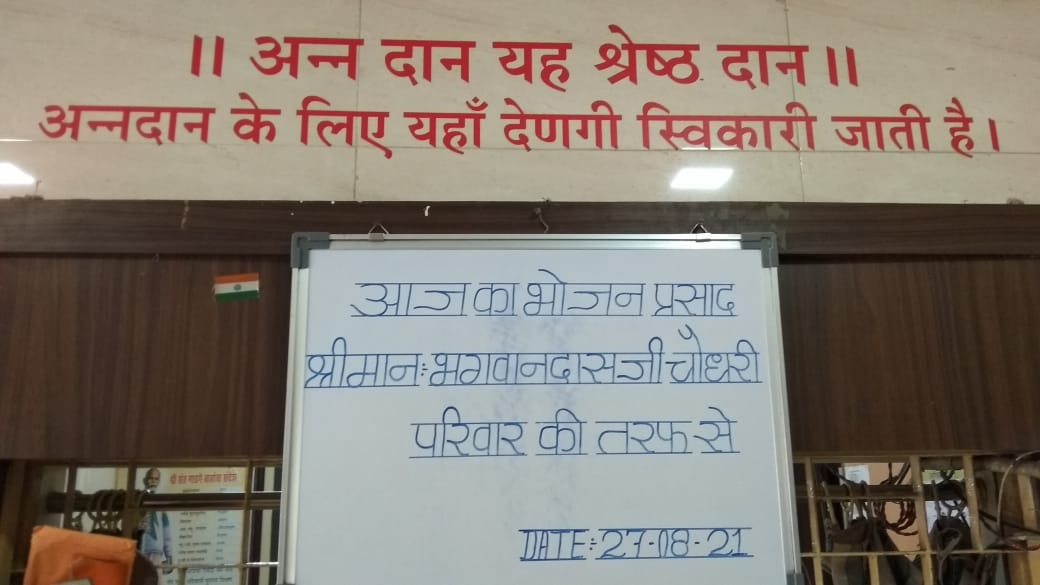 ।। अन्न दान यह श्रेष्ठ दान ।।
अन्नदान के लिए यहाँ देणगी स्विकारी जाती है।
आज का भोजन प्रसाद
श्रीमानः भगवानदासजी चौधरी
परिवार की तरफ से
DATE: 27-08-21
श्री संत गाडगे बाबांचा संदेश